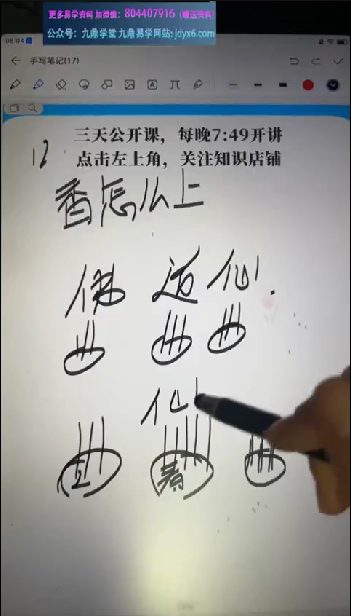 更多易学资料 加微信：804407916（赠送资料）
公众号：九鼎学堂 九鼎易学网站：jdyx6.com
手写笔记(17)
三天公开课，每晚7:49开讲
12
点击左上角，关注知识店铺
香怎么上
佛 道 仙
仙